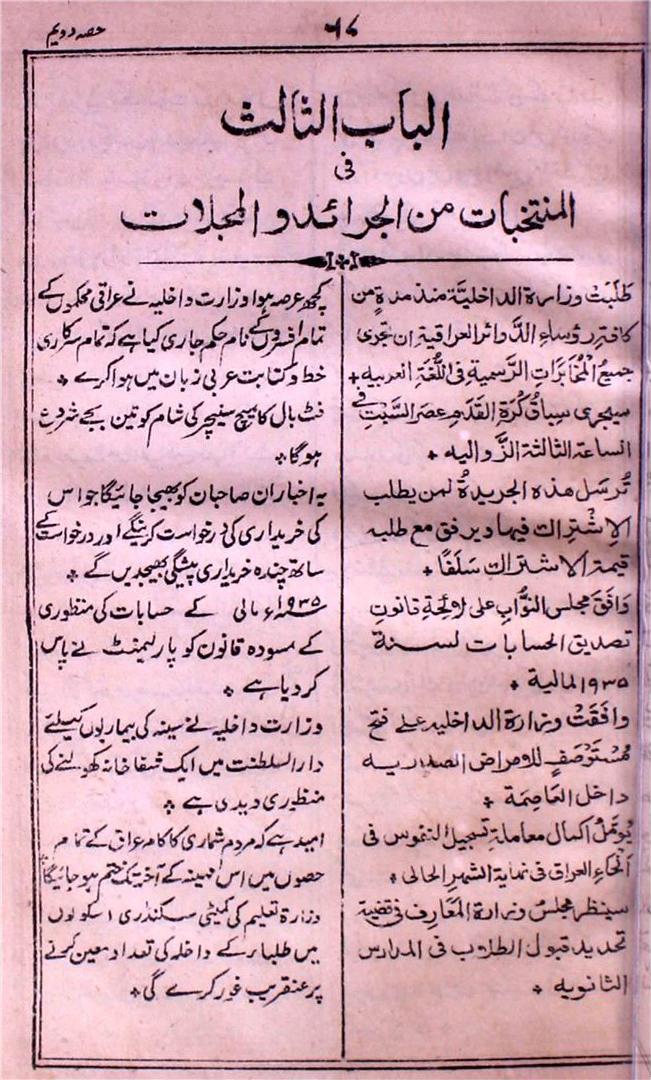 حصہ دویم
۶۸
الباب الثالث
فی
المنتخبات من الجرائد والمجلات
طَلَبَتْ وزارة الداخليَّة منذ مدةٍ من
كافةِ رؤساءِ الدَّوائر العراقيةِ ان تجرى
جميعُ المُخَابَراتِ الرَّسميةِ فى اللُّغَةِ العربيه *
سيجرى سباقُ كُرَةِ القَدَمِ عصرَ السَّبْتِ فى
الساعة الثالثة الزَّواليه *
تُرسَل هذه الجريدةُ لمن يطلب
الاِشْتِراك فيها ويرفق مع طلبه
قيمة الاشتراك سَلَفًا *
وَافَقَ مجلس النُّوَّاب على لَائحةِ قانونِ
تصديق الحسابات لسنة
۱۹۳۵ المالية *
وافَقَتْ وزارة الداخليه على فتح
مُسْتَوْصَفٍ للامراض الصدريه
داخل العاصِمَة *
يُوتَملُ اكمال معاملة تسجيل النفوس فى
اَنْحَاءِ العراق فى نهاية الشهر الحالى *
سينظر مجلسُ وزارة المَعَارِف فى قضية
تحديد قبول الطلاب فى المدارس
الثانويه *
کچھ عرصہ ہوا وزارت داخلیہ نے عراقی محکموں کے
تمام افسروں کے نام حکم جاری کیا ہے کہ تمام سرکاری
خط و کتابت عربی زبان میں ہوا کرے *
فٹ بال کا میچ سنیچر کی شام کو تین بجے شروع
ہوگا *
یہ اخبار ان صاحبان کو بھیجا جائیگا جو اس
کی خریداری کی درخواست کرینگے اور درخواست کے
ساتھ چندہ خریداری پیشگی بھیجدیں گے *
۱۹۳۵ء مالی کے حسابات کی منظوری
کے مسودہ قانون کو پارلیمنٹ نے پاس
کر دیا ہے *
وزارت داخلیہ نے سینہ کی بیماریوں کیلئے
دارالسلطنت میں ایک شفا خانہ کھولنے کی
منظوری دیدی ہے *
امید ہے کہ مردم شماری کا کام عراق کے تمام
حصوں میں اس مہینہ کے آخر تک ختم ہو جائیگا
وزارۃ تعلیم کی کمیٹی سکنڈری اسکولوں
میں طلبار کے داخلہ کی تعداد معین کرنے
پر عنقریب غور کرے گی *